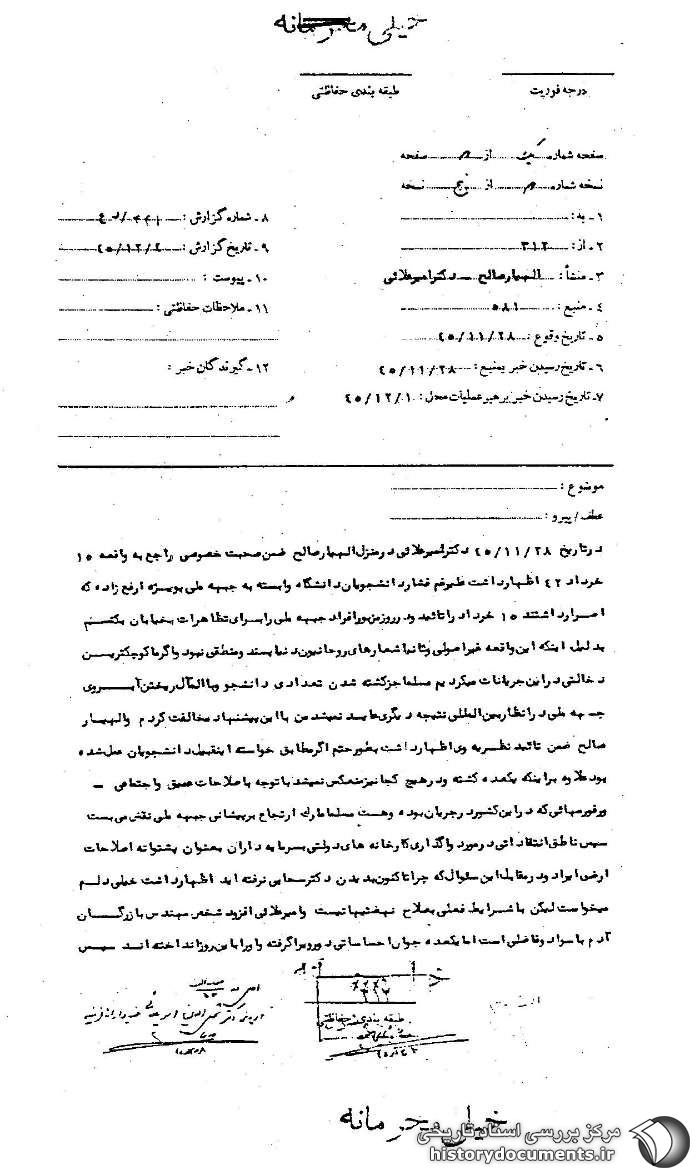 خیلی محرمانه
درجه فوریت
طبقه بندی حفاظتی
صفحه شماره یک از صفحه
نسخه شماره از پنج نسخه
۱ـ به :
۲ـ از : ۳۱۲
۳ـ منشأ : الهیارصالح ـ دکترامیرعلائی
۴ـ منبع : ۵۸۱
۵ـ تاریخ وقوع : ۴۵/۱۱/۲۸
۶ـ تاریخ رسیدن خبر بمنبع : ۴۵/۱۱/۲۸
۷ـ تاریخ رسیدن خبر برهبر عملیات محل : ۴۵/۱۲/۱
۸ـ شماره گزارش :
۹ـ تاریخ گزارش : ۴۵/۱۲/۶
۱۰ـ پیوست :
۱۱ـ ملاحظات حفاظتی :
۱۲ـ گیرندگان خبر :
موضوع :
عطف/پیرو :
درتاریخ ۴۵/۱۱/۲۸ دکترامیرعلائی درمنزل الهیارصالح ضمن صحبت خصوصی راجع به واقعه ۱۵
خرداد ۴۲ اظهارداشت علیرغم فشاردانشجویان دانشگاه وابسته به جبهه ملی بویژه ارفع زاده که
اصرارداشتند ۱۵ خرداد راتائید ودرروزمزبورافراد جبهه ملی رابرای تظاهرات بخیابان بکشیم
بدلیل اینکه این واقعه غیراصولی وثانیا شعارهای روحانیون دنیا پسند ومنطقی نبود واگرماکوچکترین
دخالتی دراین جریانات میکردیم مسلما جزکشته شدن تعدادی دانشجو وبالمآل ریختن آبروی
جبهه ملی درانظاربین المللی نتیجه دیگری عاید نمیشد من بااین پیشنهاد مخالفت کردم والهیار
صالح ضمن تائید نظریه وی اظهارداشت بطورحتم اگرمطابق خواسته اینقبیل دانشجویان عمل شده
بودعلاوه براینکه یکعده کشته ودرهیچ کجا نیزمنعکس نمیشد باتوجه باصلاحات عمیق واجتماعی -
ورفورمهائی که دراین کشوردرجریان بوده وهست مسلما مارک ارتجاع برپیشانی جبهه ملی نقش می بست
سپس ناطق انتقاداتی درمورد واگذاری کارخانه های دولتی بسرمایه داران بعنوان پشتوانه اصلاحات
ارضی ایراد ودرمقابل این سئوال که چراتاکنون بدیدن دکترسحابی نرفته اید اظهارداشت خیلی دلم
میخواست لیکن باشرایط فعلی بصلاح نهضتیها نیست وامیرعلائی افزود شخص مهندس بازرگان
آدم باسواد وفاضلی است امایکعده جوان احساساتی دوروبراوراگرفته واورا باین روزانداخته اند سپس
طبقه بندی حفاظتی
خیلی محرمانه
مرکز بررسی اسناد تاریخی
historydocuments.ir